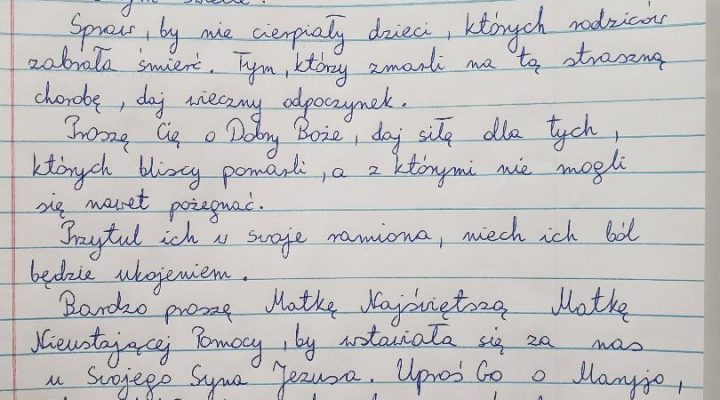 Spraw, by nie cierpiały dzieci, których rodziców
zabrała śmierć. Tym, którzy zmarli na tą straszną
chorobę, daj wieczny odpoczynek.
Proszę Cię o Dobry Boże, daj siłę dla tych,
których bliscy pomarli, a z którymi nie mogli
się nawet pożegnać.
Przytul ich w swoje ramiona, niech ich ból
będzie ukojeniem.
Bardzo proszę Matkę Najświętszą Matkę
Nieustającej Pomocy, by wstawiała się za nas
u Swojego Syna Jezusa. Uproś Go o Maryjo,